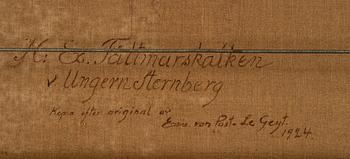 H. Ex. Fältmarskalken
v Ungern Sternberg
Kopia efter original av
von Post- Le Geyt.
1924.